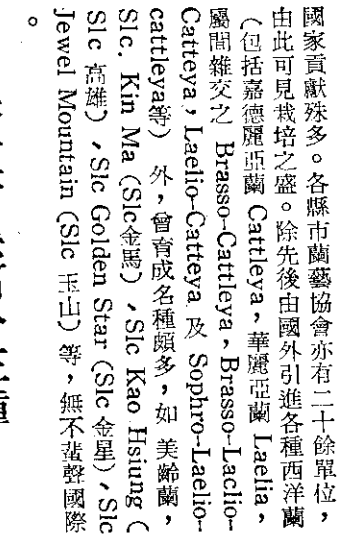 國家貢獻殊多。各縣市蘭藝協會亦有二十餘單位，
由此可見栽培之盛。除先後由國外引進各種西洋蘭
（包括嘉德麗亞蘭 Cattleya，華麗亞蘭 Laelia，
屬間雜交之 Brasso-Cattleya，Brasso-Laclio-
Catteya，Laelio-Catteya 及 Sophro-Laelio-
cattleya等）外，曾育成名種頗多，如 美齡蘭，
Slc. Kin Ma (Slc金馬)、Slc Kao Hsiung (
Slc 高雄)、Slc Golden Star (Slc 金星)、Slc
Jewel Mountain (Slc 玉山) 等，無不蜚聲國際
。